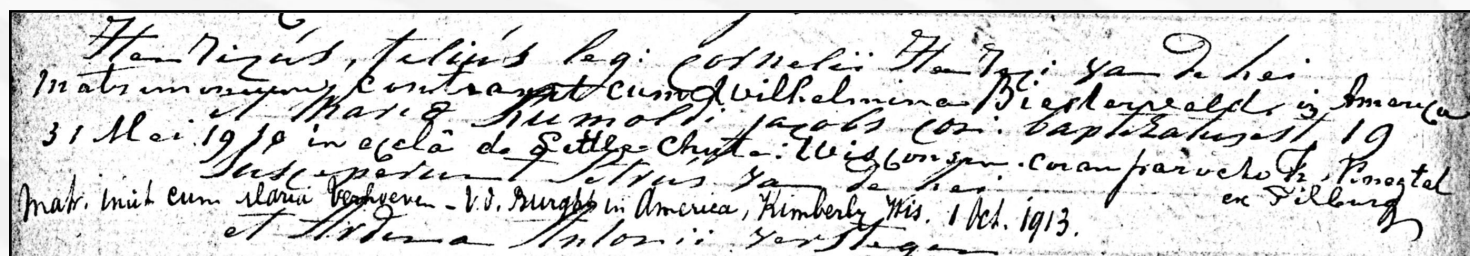 Henricus, filius leg: cornelii Henrici van de hei
Matrimonium contraxit cum Wilhelmina Biesterveld in America
et Maria Rumoldi Jacobs conj. baptizatus est 19
31 Mei 1910 in eccla de Little Chute: Wisconsin. coram parocho Th. Knegtel
Susceperunt Petrus van de hei
ex Tilburg
Matr. iniit cum Maria Verhoeven - V. d. Burght in America, Kimberly Wis. 1 Oct. 1913.
et Ardina Antonii Verstegen